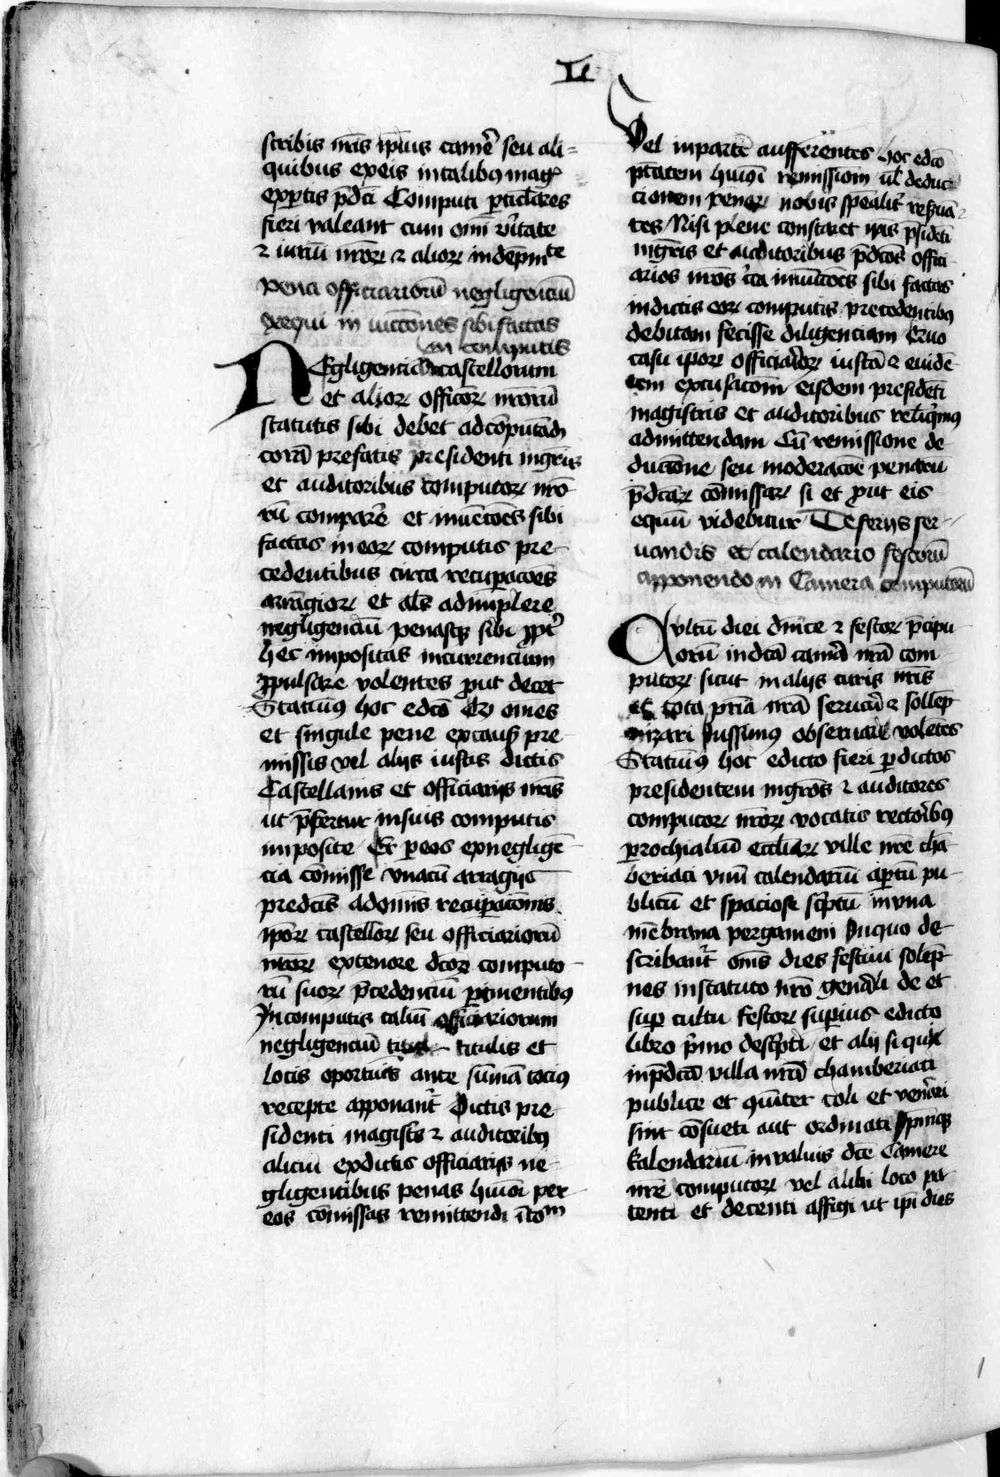 L
scribis nr̄is ip̄ius camē seu ali=
quibus ex eis in talibus mag
exp̄tis p̄dc̄i Computi p̄ticl̄ares
fieri valeant cum om̄i v̄itate
⁊ iuriū nr̄orꝝ ⁊ aliorꝝ indēpnite
Pena officiariorū negligenciū
exequi in iūctiones sibi factas
in computis
Negligenciā castellorum
et aliorꝝ officiorꝝ nr̄orū
statutis sibi debet ad cōputādū
corā prefatis presidenti mgr̄is
et auditoribus computorꝝ nr̄o
rū comparē et iniūctōēs sibi
factas in eorꝝ computis pre-
cedentibus circa recup̄acōēs
arragiorꝝ et al̄s adimplere
negligenciū penasqꝫ sibi ꝓpt̄
hec impositas incurrencium
ꝓpulsare volentes ꝓut decet
Statuimꝰ hoc edc̄o Qꝫ om̄es
et singule pene ex causis pre-
missis vel alijs iustis dictis
Castellanis et officiarijs nr̄is
ut p̄fertur in suis computis
imposite Et ꝑ eos ex negligē-
cia cōmisse vnacū arragijs
predc̄is ad om̄is recup̄acōnis
ipōrꝝ castellorꝝ seu officiariorū
nr̄orꝝ ex tenore dc̄orꝝ computo-
rū suorꝝ p̄cedenciū ꝑtinentibꝰ
In computis taliū officiariorum
negligenciū titul titulis et
locis oportunis ante sūmā tocius
recepte apponant̄ Dictis pre
sidenti magist̄s ⁊ auditoribꝰ
alicui ex dictis officiarijs ne-
gligentibus penas huiꝰmōi per
eos cōmissas remittendi ī totum
Vel in partē aufferentes hoc edc̄o
ptātem huiꝰmōi remissiom̄ ul̄ deduc-
cionem penarꝝ nobis sp̄ealit̄ reseruā-
tes Nisi plene constaret ip̄is p̄sidēti
mgr̄is et auditoribus p̄dc̄os offici
arios nr̄os c̄ca iniūctōēs sibi factas
in dictis eorꝝ computis precedentibꝰ
debitam fecisse diligenciam Quo
casu ipōrꝝ officiariorꝝ iustā ⁊ euidē-
tem excusaciom̄ eisdem presidēti
magistris et auditoribus relinqmꝰ
admittendam Cū remissione de
ductōne seu moderacōe penarū
p̄dc̄arꝝ cōmissarꝝ si et ꝓut eis
equū videbitur De ferijs ser-
uandis et calendario festorū
apponendo in Camera computorū
Cultū diei dn̄ice ⁊ festorꝝ p̄cipu
orū in dc̄ā camera nr̄ā com
putorꝝ sicut in alijs curijs nr̄is
et tota pr̄iā nr̄ā seruari ⁊ sollēp-
nizari Iussimꝰ obseruare volētes
Statuimꝰ hoc edicto fieri ꝑ dictos
presidentem mgr̄os ⁊ auditores
computorꝝ nr̄orꝝ vocatis rectoribꝰ
ꝑrochialiū eccl̄iarꝝ ville nr̄e chā-
beriaci vnū calendariū apertū pu-
blicū et spaciose sc̄ptū in vna
mēbrana pergameni In quo de-
scribant̄ om̄s dies festiui solēp-
nes in statuto nr̄o gen̄ali de et
sup̄ cultu festorꝝ superius edicto
libro p̄mo desc̄pti et alij si qui
in p̄dc̄ā villa nr̄ā chamberiaci
publice et cōiter coli et ven̄ari
sint cōsueti aut ordinati Ip̄mqꝫ
kalendariū in valuis dc̄e Camere
nr̄e computorꝝ vel alibi loco pa-
tenti et decenti affigi ut ip̄i dies